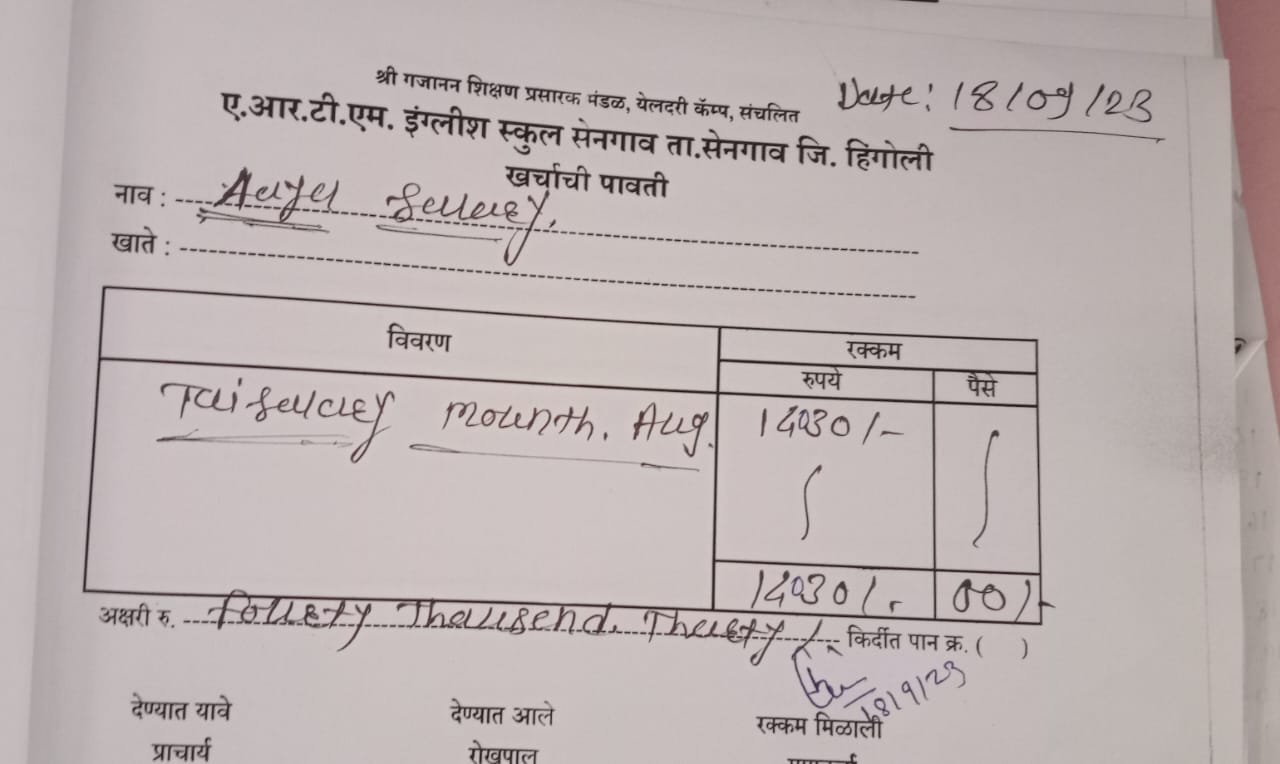 श्री गजानन शिक्षण प्रसारक मंडळ, येलदरी कॅम्प, संचलित
Date: 18/09/23
ए.आर.टी.एम. इंग्लीश स्कुल सेनगाव ता.सेनगाव जि. हिंगोली
खर्चाची पावती
नाव :
खाते :
विवरण रक्कम
रुपये पैसे
mounth. Aug. 14030/-
14030/- 00/-
अक्षरी रु. Thausend. किर्दीत पान क्र. ( )
18/9/23
देण्यात यावे देण्यात आले रक्कम मिळाली
प्राचार्य रोखपाल